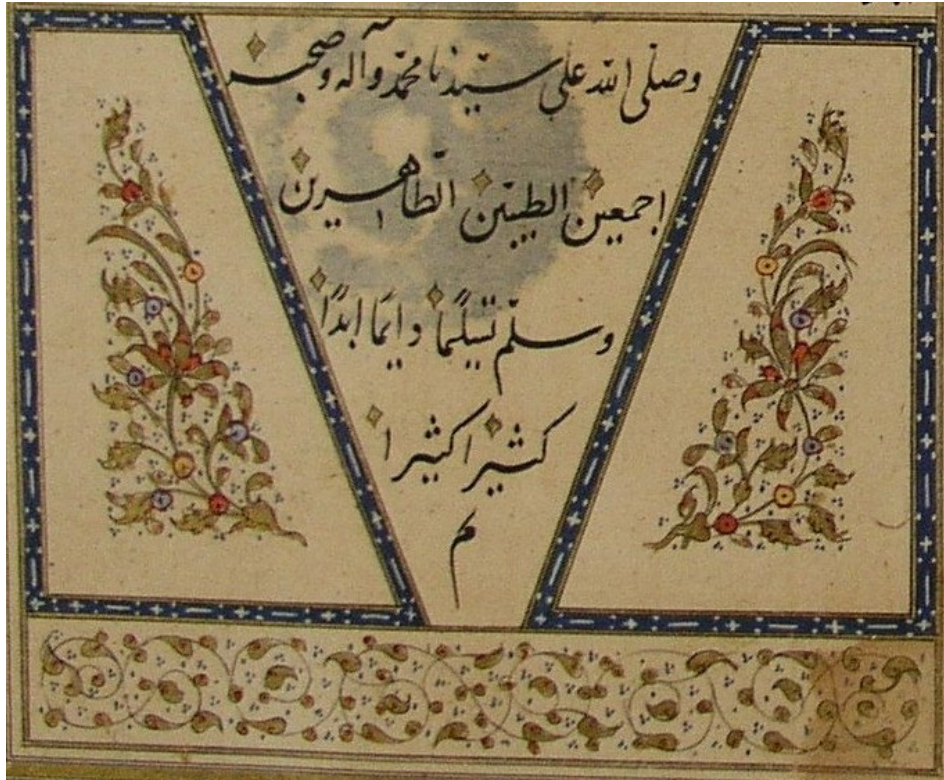 وصلّى الله على سيّدنا محمّد وآله وصحبه
اجمعين الطيبّين الطّاهرين
وسلّم تسليمًا دايمًا ابدًا
كثيرا كثيرا
م